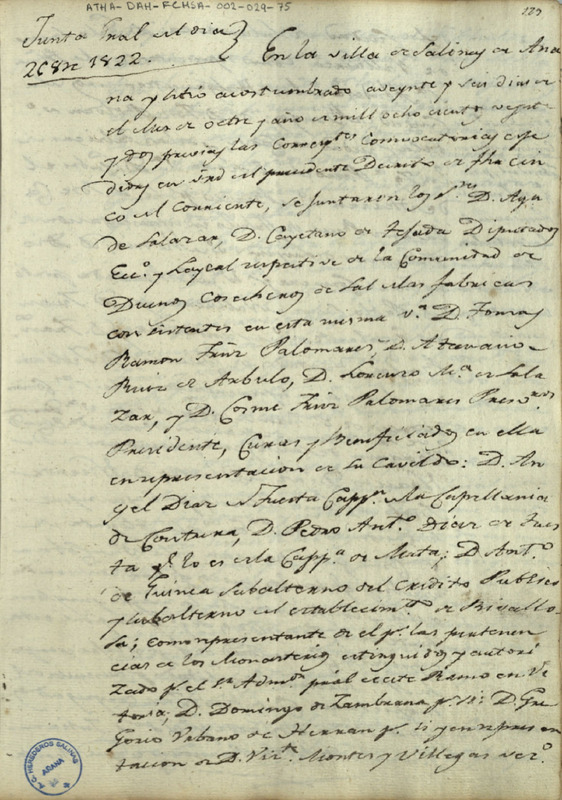 ATHA-DAH-FCHSA-002-029-75
123
Junta Gral del dia
26 8re 1822.
En la villa de Salinas de Aña
na y sitio acostumbrado a veynte y seis dias de
el Mes de Octre y año de mill ocho cientos veynte
y dos previas las Convocatorias espe
didas en del precedente Decreto de fha cin
co del Corriente, se juntaron los Sres D. Aga
de Salazar, D. Cayetano de Tejada Diputados
Ecco. y Laycal respective de la Comunidad de
Dueños Cosecheros de Sal de las fabricas
con sistentes en esta misma va. D. Tomas
Ramon Frnz Palomares D. Atanasio
Ruiz de Arbulo, D. Lorenzo Ma. de Sala
zar, y D. Cosme Frnz Palomares Presvros
Presidente, Curas y Beneficiados en ella
en representacion de su Cavildo: D. An
gel Diaz de Tuesta Cappn. de la Capellania
de Corcuera, D. Pedro Anto. Diaz de Tues
ta qe. lo es de la Cappa de Mata; D. Anto.
de Guinea Subalterno del Credito Publico
y subalterno del establecimto. de
como representante de el pr. las pertenen
cias de los Monasterios extinguidos y autori
zado pr. el Sr. Admor. pral de este Ramo en Vi
toria, D. Domingo de Zambrana pr. si: D. Gre
gorio Urbano de Herran pr. si y en represen
tacion de D. Montes y Villegas vero.
A.C. HEREDEROS SALINAS
AÑANA